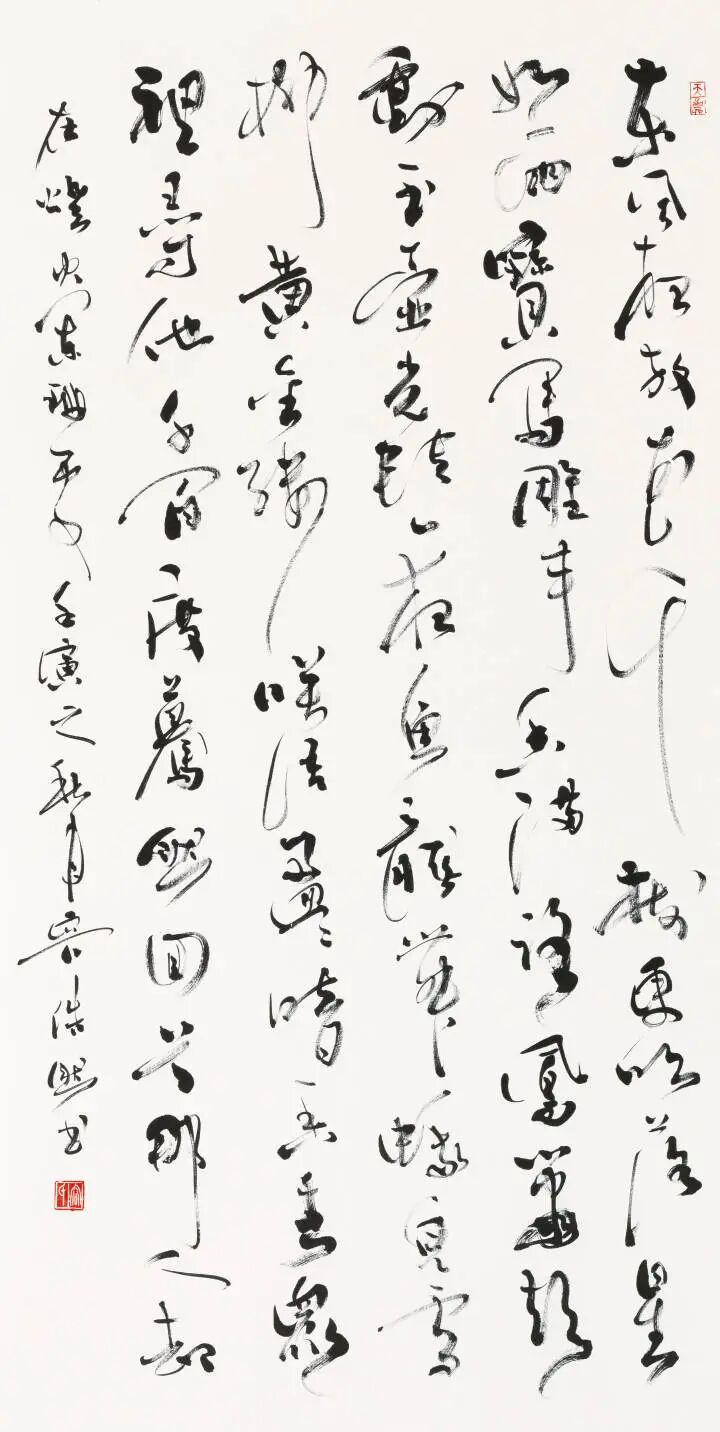 東風夜放花千樹更吹落星
如雨寶馬雕車香滿路鳳簫聲
動玉壺光轉一夜魚龍舞蛾兒雪
柳黃金縷咲語盈〻暗香去眾
裡尋他千百度驀然回首那人却
在燈火闌珊處壬寅之秋月浩然書